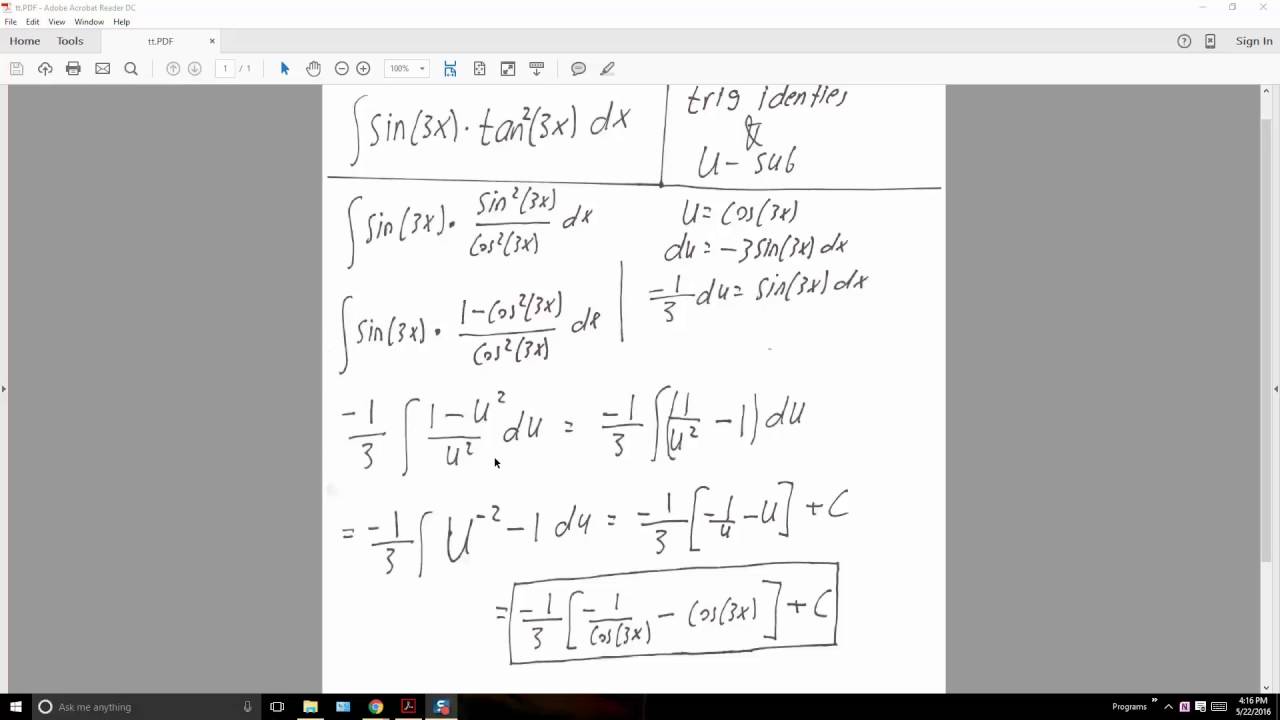 tt.PDF - Adobe Acrobat Reader DC
File Edit View Window Help
Home Tools tt.PDF × Sign In
1 / 1 100%
∫ sin(3x) · tan²(3x) dx
trig identies
&
u - sub
∫ sin(3x) · sin²(3x)/cos²(3x) dx
u = cos(3x)
du = -3sin(3x) dx
-1/3 du = sin(3x) dx
∫ sin(3x) · 1-cos²(3x)/cos²(3x) dx
-1/3 ∫ 1-u²/u² du = -1/3 ∫ (1/u² - 1) du
= -1/3 ∫ u⁻² - 1 du = -1/3 [-1/u - u] + C
= -1/3 [-1/cos(3x) - cos(3x)] + C
Ask me anything
Programs
4:16 PM
5/22/2016